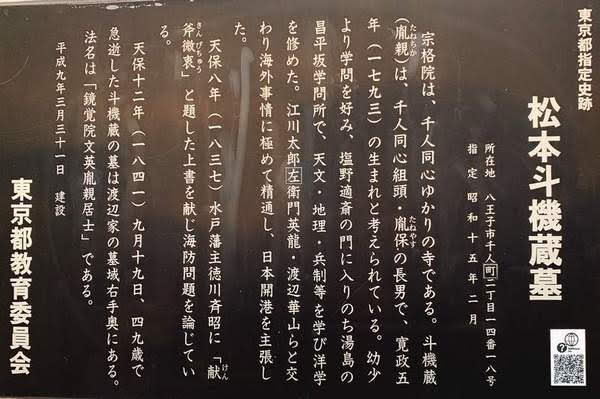 東京都指定史跡
松本斗機蔵墓
所在地 八王子市千人町二丁目一四番一八号
指定 昭和十五年二月
宗格院は、千人同心ゆかりの寺である。斗機蔵
(胤親)は、千人同心組頭・胤保の長男で、寛政五
たねちか
たねやす
年(一七九三)の生まれと考えられている。幼少
より学問を好み、塩野適斎の門に入りのち湯島の
昌平坂学問所で、天文・地理・兵制等を学び洋学
を修めた。江川太郎左衛門英龍・渡辺華山らと交
わり海外事情に極めて精通し、日本開港を主張し
た。
天保八年(一八三七)水戸藩主徳川斉昭に「献
けん
斧微衷」と題した上書を献じ海防問題を論じてい
きん びちゅう
る。
天保十二年(一八四一)九月十九日、四九歳で
急逝した斗機蔵の墓は渡辺家の墓域右手奥にある。
法名は「鏡覚院文英胤親居士」である。
平成九年三月三十一日 建設
東京都教育委員会